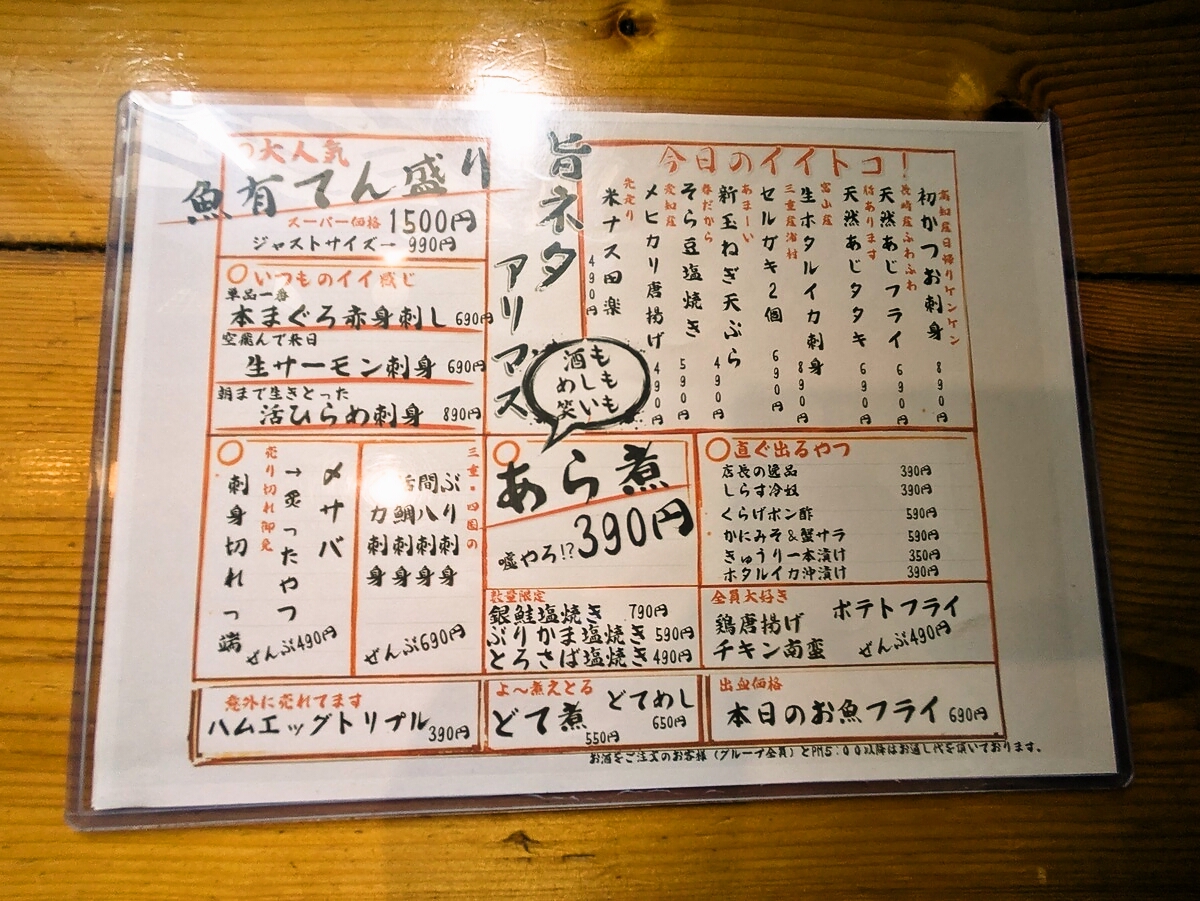 大人気
魚有てん盛り
スーパー価格 1500円
ジャストサイズー 990円
いつものイイ感じ
単品一番
本まぐろ赤身刺し 690円
空飛んで来日
生サーモン刺身 690円
朝まで生きとった
活ひらめ刺身 890円
旨ネタ
アリマス
酒も
めしも
笑いも
今日のイイトコ!
高知産日帰りケンケン
初かつお刺身 890円
長崎産ふわふわ
天然あじフライ 690円
骨あります
天然あじタタキ 690円
富山産
生ホタルイカ刺身 890円
三重産浦村
セルガキ2個 690円
あまーい
新玉ねぎ天ぷら 490円
春だから
そら豆塩焼き 590円
愛知産
メヒカリ唐揚げ 490円
先走り
米ナス田楽 490円
メサバ
→炙ったやつ
売り切れ御免
刺身切れっ端
ぜんぶ490円
三重・四国の
ぶり刺身
間八刺身
活鯛刺身
刺身
ぜんぶ690円
あら煮
嘘やろ!? 390円
数量限定
銀鮭塩焼き 790円
ぶりかま塩焼き 590円
とろさば塩焼き 490円
直ぐ出るやつ
店長の逸品 390円
しらす冷奴 390円
くらげポン酢 590円
かにみそ&蟹サラ 590円
きゅうり一本漬け 350円
ホタルイカ沖漬け 390円
全員大好き
鶏唐揚げ ポテトフライ
チキン南蛮 ぜんぶ490円
意外に売れてます
ハムエッグトリプル 390円
よ〜煮えとる
どて煮 550円
どてめし 650円
出血価格
本日のお魚フライ 690円
お酒をご注文のお客様(グループ全員)とPM5:00以降はお通し代を頂いております。